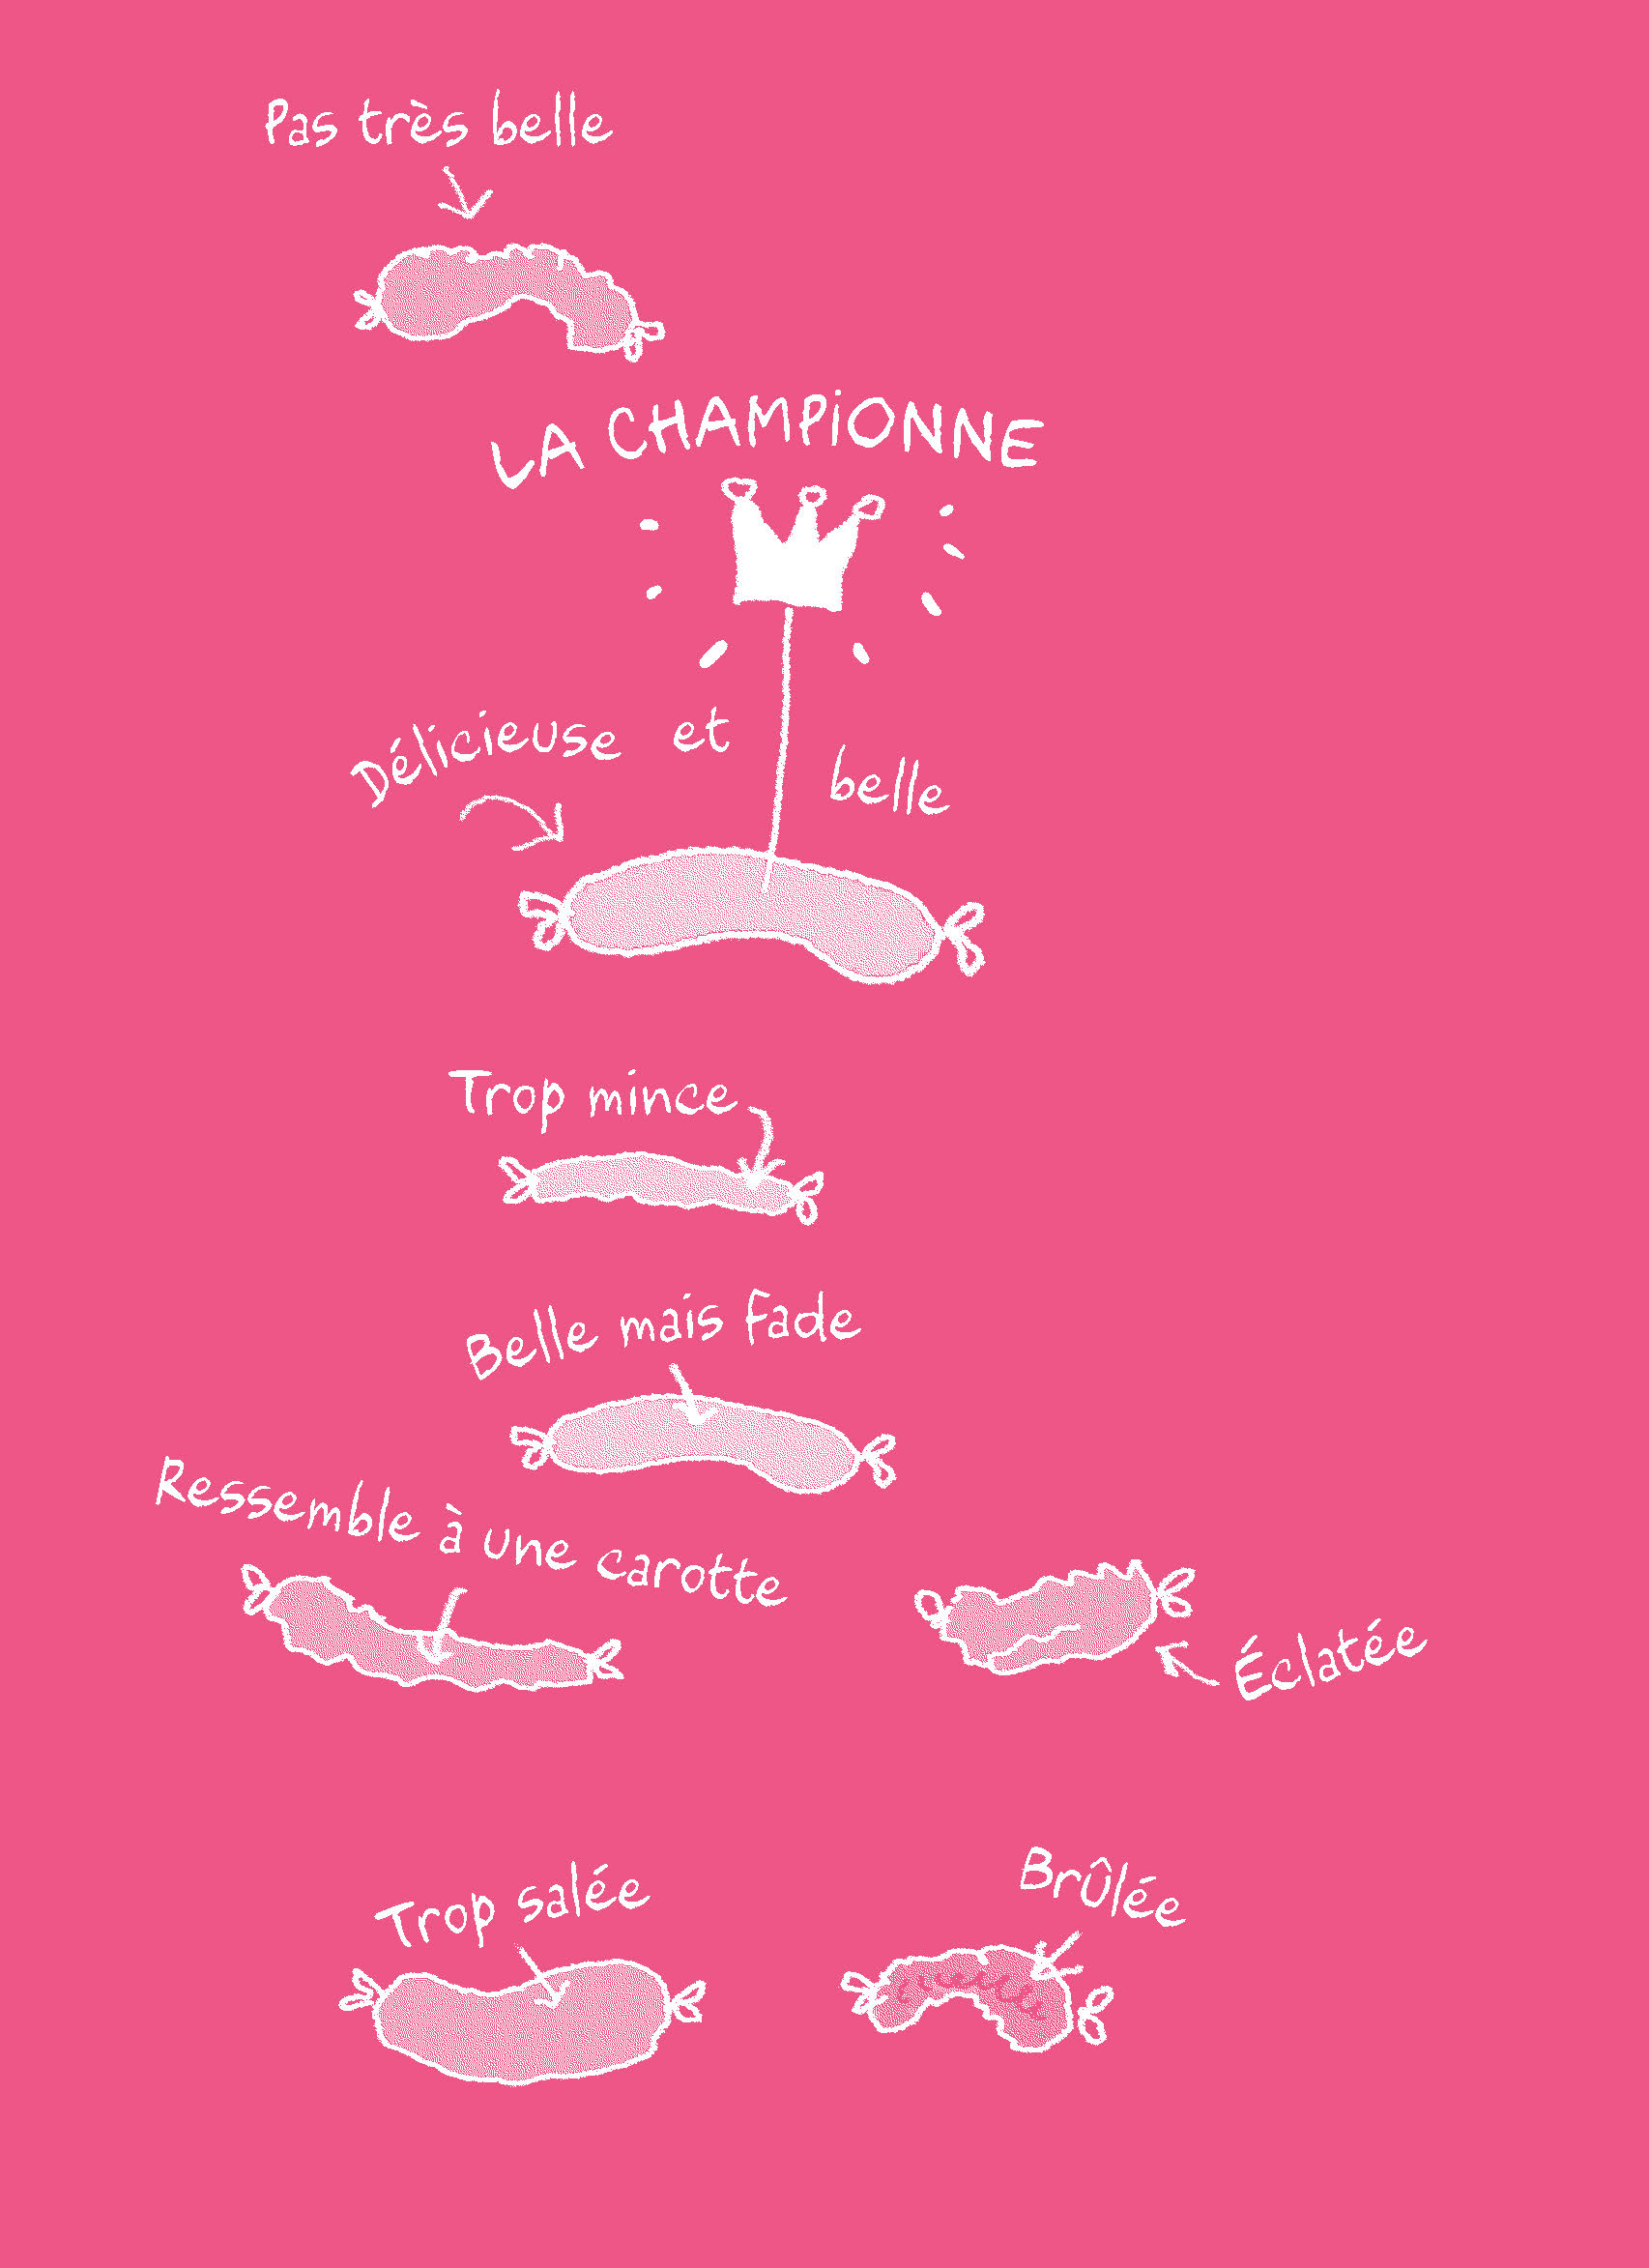 Pas très belle
LA CHAMPiONNE
Délicieuse et belle
Trop mince
Belle mais fade
Ressemble à une carotte
Éclatée
Trop salée
Brûlée